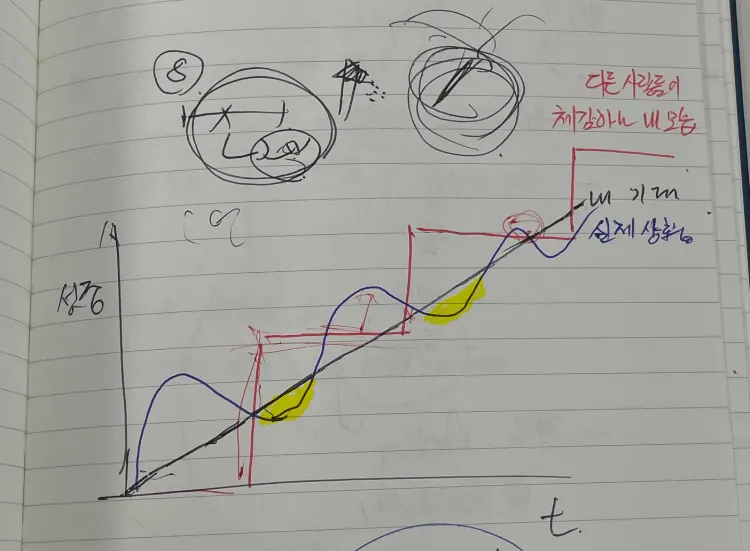 8
다른 사람들이
체감하는 내 모습
내 기대
실제 상황
성장
t.